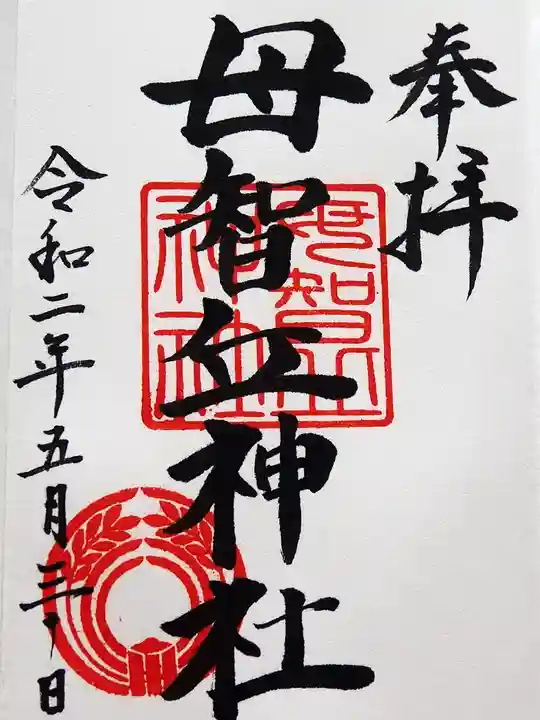 奉拝
母智丘神社
母智丘
神社
令和二年五月三十日